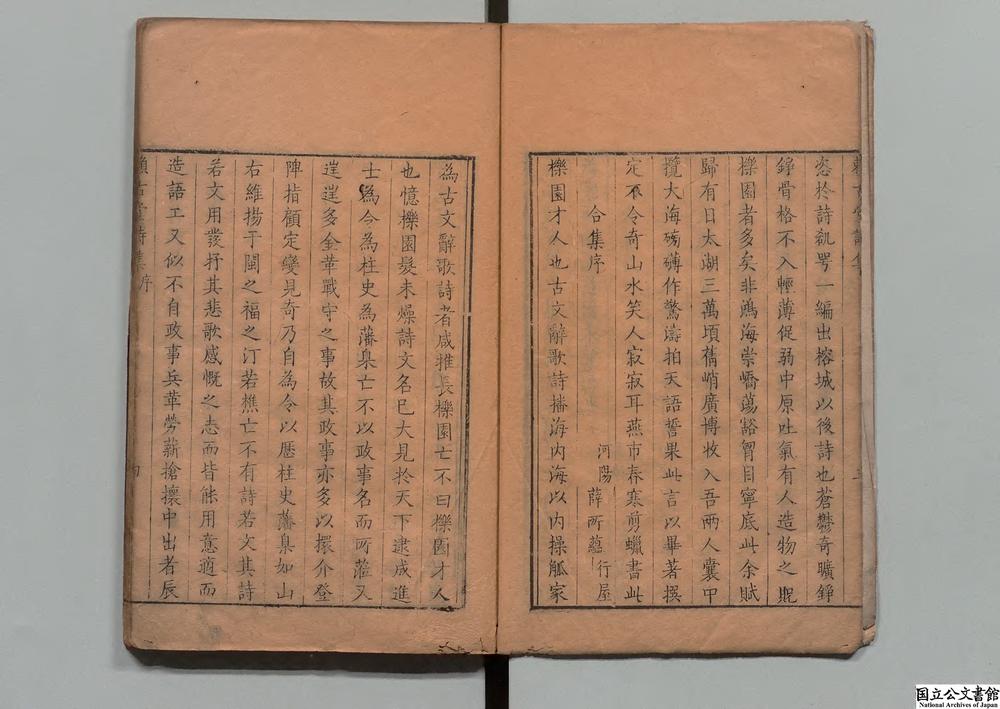 恣於詩氿咢一編出榕城以後詩也蒼欝奇曠錚
錚骨格不入輕薄促弱中原吐氣有人造物之貺
櫟園者多矣非鴻海崇嶠蕩豁胷目寧底此余賦
歸有日太湖三萬頃舊峭廣博收入吾兩人囊中
攬大海磅礴作驚濤拍天語誓果此言以畢著撰
定不令奇山水笑人寂寂耳燕市春寒剪蠟書此
河陽薛所蘊行屋
合集序
櫟園才人也古文辭歌詩播海內海以內操觚家
為古文辭歌詩者咸推長櫟園亡不曰櫟園才人
也憶櫟園髮未燥詩文名巳大見於天下逮成進
士為令為柱史為藩臬亡不以政事名而所蒞又
逞逞多金革戰守之事故其政事亦多以擐介登
陴指顧定變見奇乃自為令以歷柱史藩臬如山
右維揚干閩之福之汀若樵亡不有詩若文其詩
若文用發抒其悲歌感慨之志而皆能用意適而
造語工又似不自政事兵革勞薪搶攘中出者辰
賴古堂詩集 序
國立公文書館
National Archives of Japan